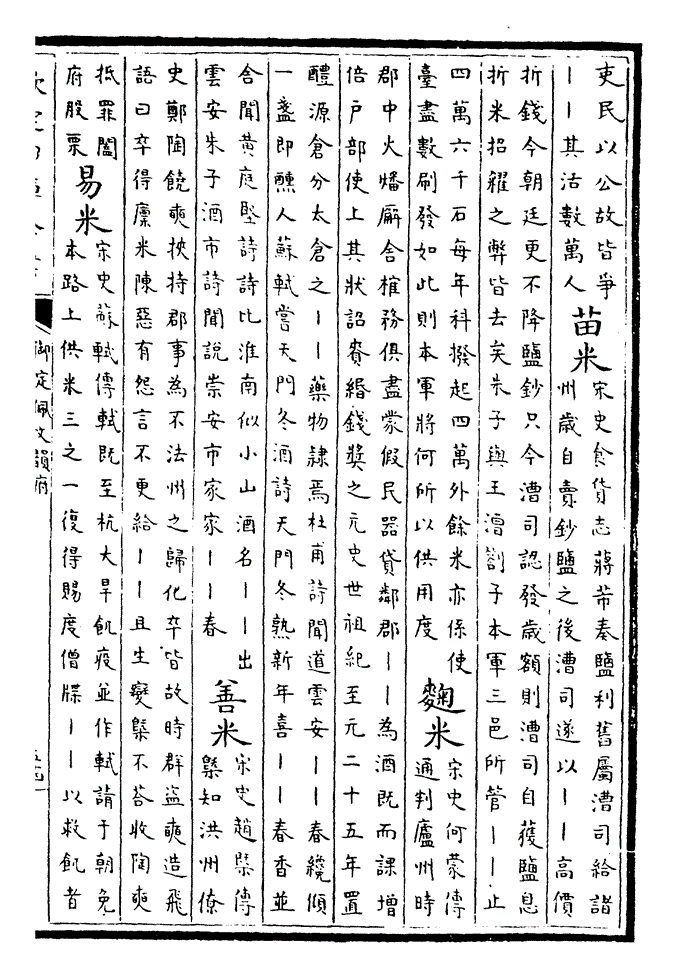 吏民以公故皆爭
丨丨其活數萬人
苗米
宋史食貨志蔣芾奏鹽利舊屬漕司給諸
州歲自賣鈔鹽之後漕司遂以丨丨高價
折錢今朝廷更不降鹽鈔只今漕司認發歲額則漕司自獲鹽息
折米招糴之弊皆去矣朱子與王漕劄子本軍三邑所管丨丨止
四萬六千石每年科撥起四萬外餘米亦係使
臺盡數刷發如此則本軍將何所以供用度
麴米
宋史何蒙傳
通判廬州時
郡中火燔廨舍榷務俱盡蒙假民器貸鄰郡丨丨為酒既而課增
倍戶部使上其狀詔賚緡錢獎之元史世祖紀至元二十五年置
醴源倉分太倉之丨丨藥物隸焉杜甫詩聞道雲安丨丨春纔傾
一盞即醺人蘇軾嘗天門冬酒詩天門冬熟新年喜丨丨春香並
舍聞黃庭堅詩詩比淮南似小山酒名丨丨出
雲安朱子酒市詩聞說崇安市家家丨丨春
善米
宋史趙槩傳
槩知洪州僚
史鄭陶饒奭挾持郡事為不法州之歸化卒皆故時群盜奭造飛
語曰卒得廩米陳惡有怨言不更給丨丨且生變槩不荅收陶奭
抵罪闔
府股栗
易米
宋史蘇軾傳軾既至杭大旱飢疫並作軾請于朝免
本路上供米三之一復得賜度僧牒丨丨以救飢者
御定佩文韻府